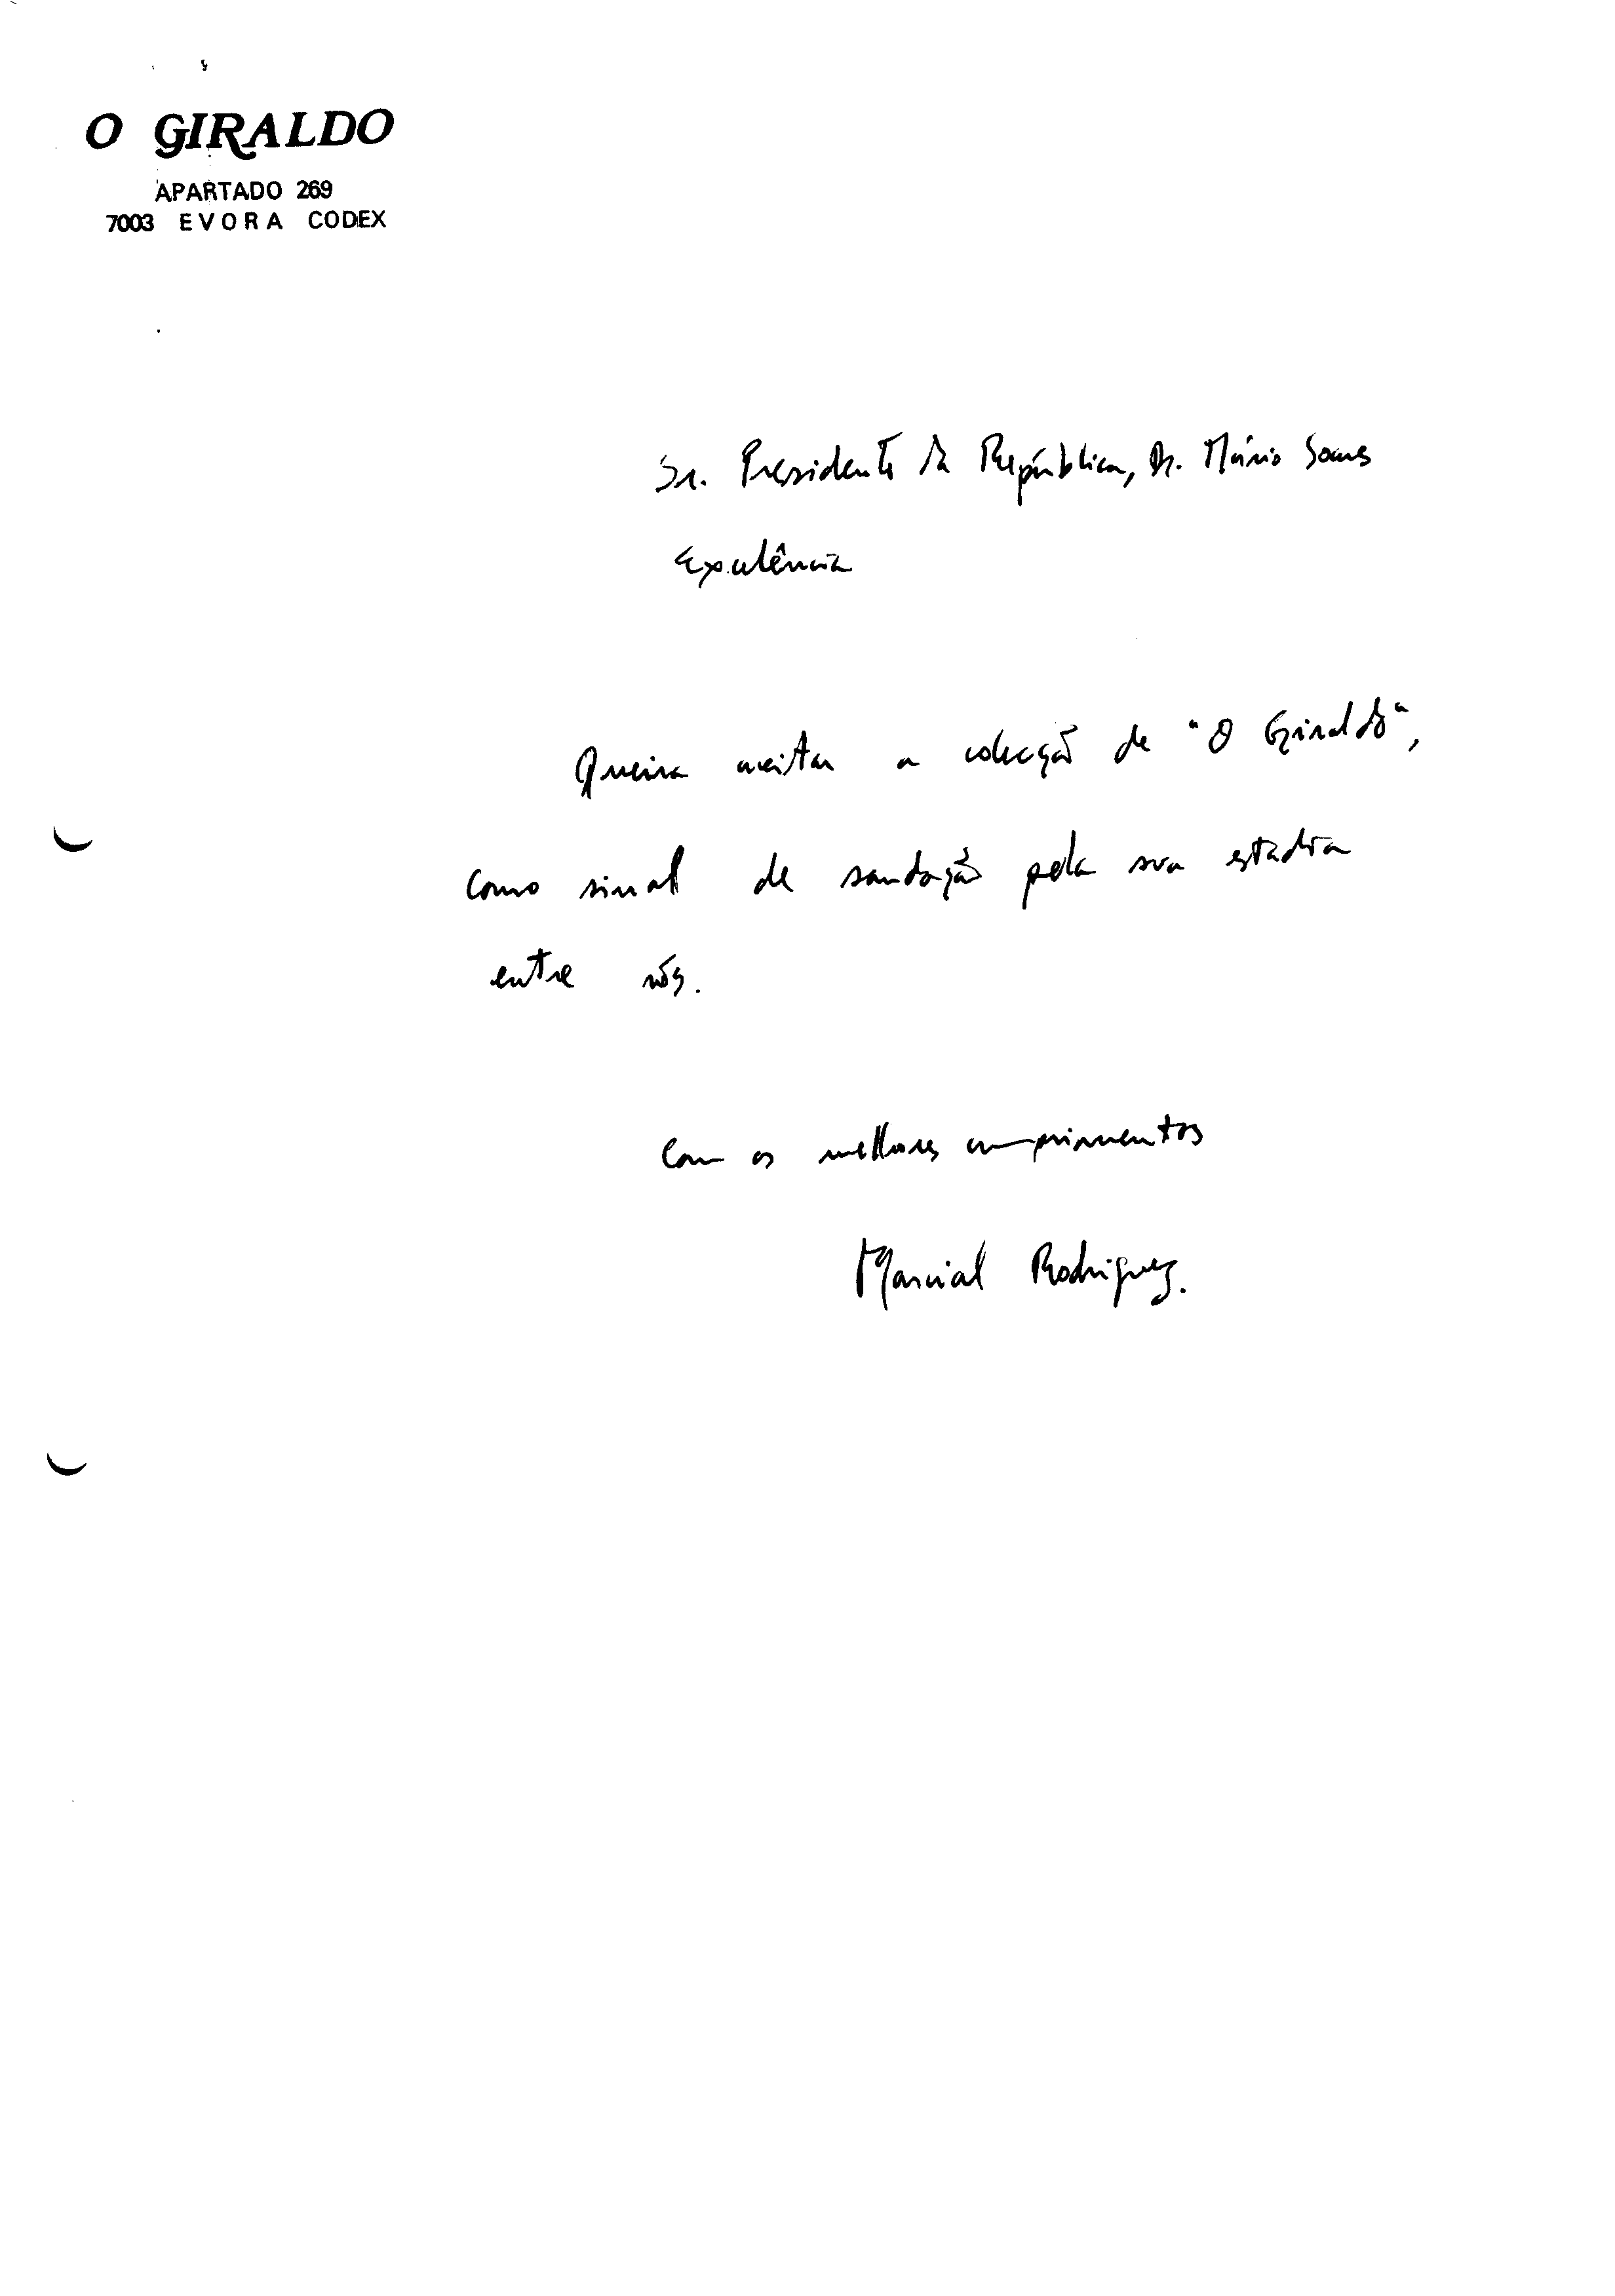 O GIRALDO
APARTADO 269
7003 EVORA CODEX
Sr. Presidente da República, Dr. Mário Soares
Excelência
Queira aceitar a colecção de "O Giraldo",
como sinal de saudação pela sua estadia
entre nós.
Com os melhores cumprimentos
Marcial Rodriguez.